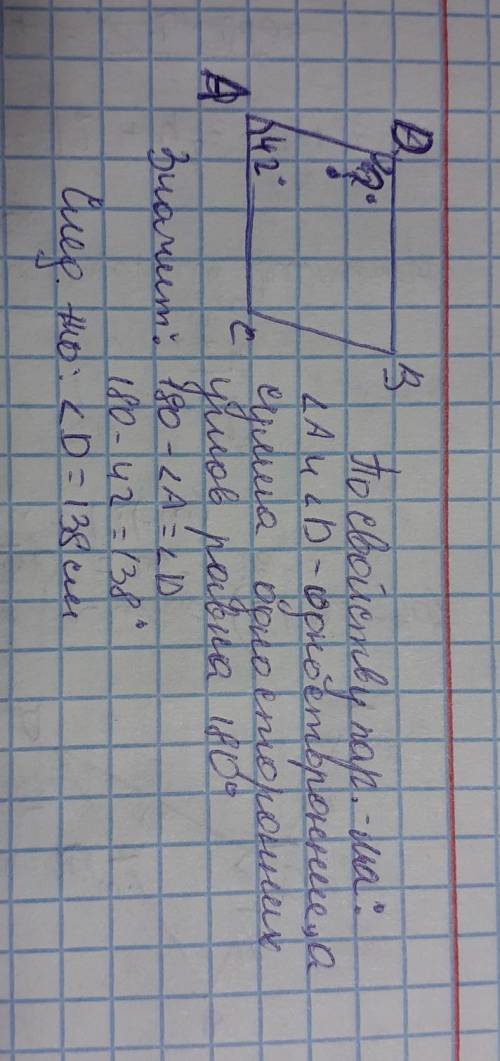 D
?°
B
A
42°
C
По свойству пар.-ма:
∠A и ∠D - односторонние, а
сумма односторонних
углов равна 180°
Значит: 180 - ∠A = ∠D
180 - 42 = 138°
След. но: ∠D = 138 см